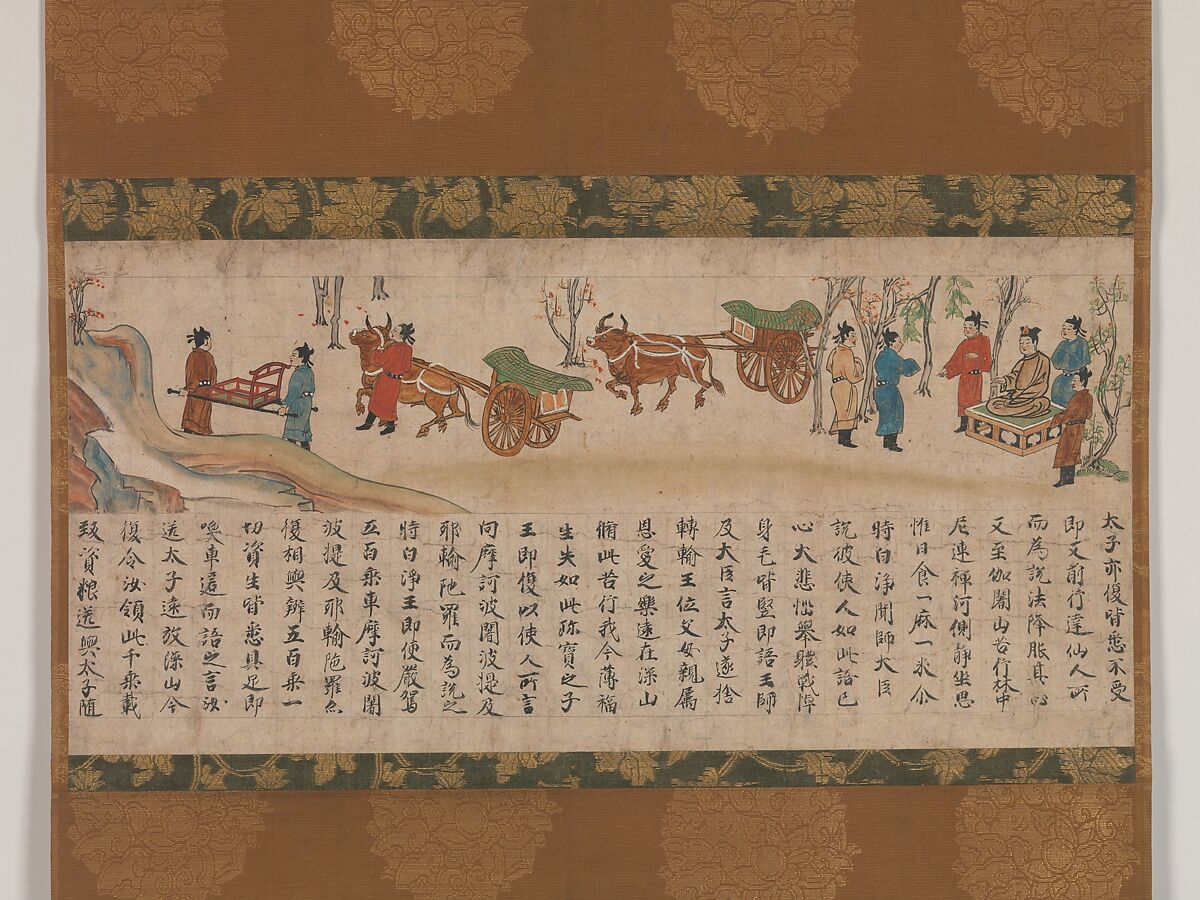 太子亦復皆悉不受
即又前行達仙人所
而為說法降服其心
又至伽闍山苦行林中
尼連禪河側静坐思
惟日食一麻一米尒
時白淨聞師大臣
說彼使人如此語已
心大悲惱舉體戰悼
身毛皆竪即語王師
及大臣言太子遂捨
轉輪王位父母親属
恩愛之樂遠在深山
脩此苦行我今薄福
生失如此珎寶之子
王即復以使人所言
向摩訶波闍波提及
耶輸陁羅而為說之
時白淨王即便嚴駕
五百乘車摩訶波闍
波提及耶輸陁羅亦
復相與辦五百乘一
切資生皆悉具足即
喚車匿而語之言汝
送太子遠放深山今
復令汝領此千乘載
致資粮送與太子随